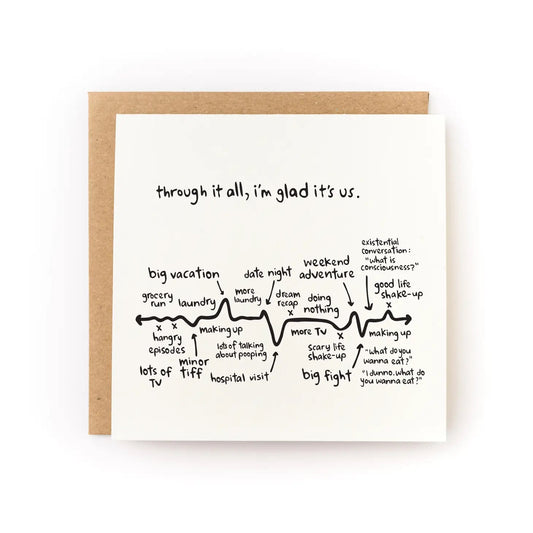 through it all, i'm glad it's us.
existential
conversation:
"what is
consciousness?"
weekend
adventure
big vacation
date night
good life
shake-up
grocery
run
laundry
more
laundry
dream
recap
doing
nothing
x x
x
x
x
hangry
episodes
making up
lots of talking
about pooping
more TV
scary life
shake-up
making up
lots of
TV
minor
tiff
hospital visit
big fight
"what do you
wanna eat?"
"I dunno. what do
you wanna eat?"